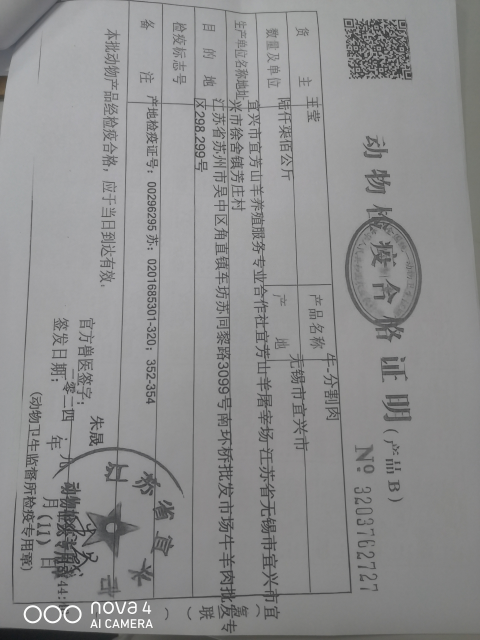 动物检疫合格证明(产品B)
№ 3203762727
货主 王莹 产品名称 牛-分割肉
数量及单位 陆仟柒佰公斤 产地 无锡市宜兴市
生产单位名称地址 宜兴市宜芳山羊养殖服务专业合作社宜芳山羊屠宰场 江苏省无锡市宜兴市宜
兴市徐舍镇芳庄村
目的地 江苏省苏州市吴中区甪直镇车坊苏同黎路3099号南环桥批发市场牛羊肉批发专
区298.299号
检疫标志号
备注 产地检疫证号:00296295 苏:0201685301-320;352-354
本批动物产品经检疫合格,应于当日到达有效。
官方兽医签字: 朱晟
签发日期: 二零二四年 月(11)日
(动物卫生监督所检疫专用章)
江苏省宜兴
第
联
nova 4
AI CAMERA